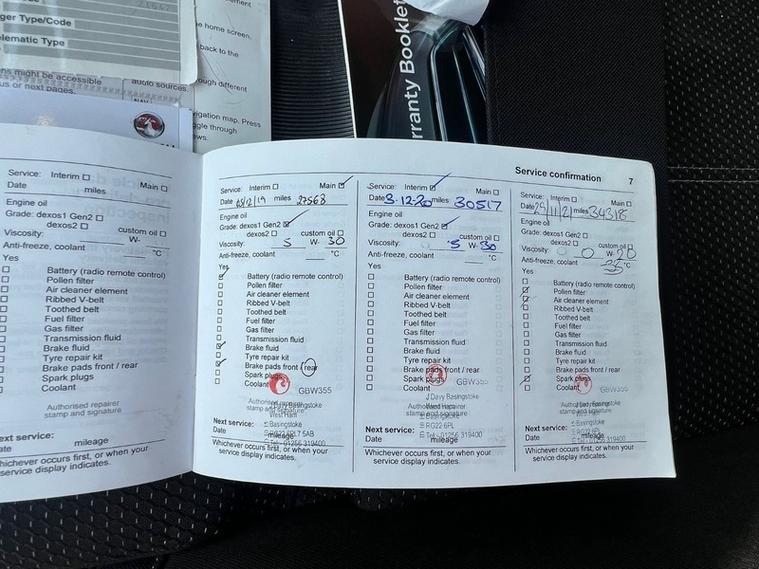 ger Type/Code
elematic Type
ns might be accessible
us or next pages.
e home screen,
back to the
ough different
audio sources
igation map. Press
ggle through
ews.
rranty Booklet
Service: Interim Main
Date miles
Engine oil
Grade: dexos1 Gen2
dexos2 custom oil
Viscosity: W-
Anti-freeze, coolant °C
Yes
Battery (radio remote control)
Pollen filter
Air cleaner element
Ribbed V-belt
Toothed belt
Fuel filter
Gas filter
Transmission fluid
Brake fluid
Tyre repair kit
Brake pads front / rear
Spark plugs
Coolant
Authorised repairer
stamp and signature
Next service:
Date mileage
Whichever occurs first, or when your
service display indicates.
Service confirmation 7
Service: Interim Main
Date miles 27568
Engine oil
Grade: dexos1 Gen2
dexos2 custom oil
Viscosity: 5 W- 30
Anti-freeze, coolant °C
Yes
Battery (radio remote control)
Pollen filter
Air cleaner element
Ribbed V-belt
Toothed belt
Fuel filter
Gas filter
Transmission fluid
Brake fluid
Tyre repair kit
Brake pads front / rear
Spark plugs
Coolant
GBW355
Authorised repairer
stamp and signature
J Davy Basingstoke
West Ham
Basingstoke
Tel: 01256 319400
Next service:
Date mileage
Whichever occurs first, or when your
service display indicates.
Service: Interim Main
Date 3-12-20 miles 30517
Engine oil
Grade: dexos1 Gen2
dexos2 custom oil
Viscosity: 5 W- 30
Anti-freeze, coolant °C
Yes
Battery (radio remote control)
Pollen filter
Air cleaner element
Ribbed V-belt
Toothed belt
Fuel filter
Gas filter
Transmission fluid
Brake fluid
Tyre repair kit
Brake pads front / rear
Spark plugs
Coolant
GBW355
Authorised repairer
stamp and signature
J Davy Basingstoke
West Ham
Basingstoke
RG22 6PL
Tel: 01256 319400
Next service:
Date mileage
Whichever occurs first, or when your
service display indicates.
Service: Interim Main
Date 25/11/21 miles 34318
Engine oil
Grade: dexos1 Gen2
dexos2 custom oil
Viscosity: 0 W- 20
Anti-freeze, coolant 35 °C
Yes
Battery (radio remote control)
Pollen filter
Air cleaner element
Ribbed V-belt
Toothed belt
Fuel filter
Gas filter
Transmission fluid
Brake fluid
Tyre repair kit
Brake pads front / rear
Spark plugs
Coolant
GBW355
Authorised repairer
stamp and signature
J Davy Basingstoke
West Ham
Basingstoke
RG22 6PL
Tel: 01256 319400
Next service:
Date mileage
Whichever occurs first, or when your
service display indicates.